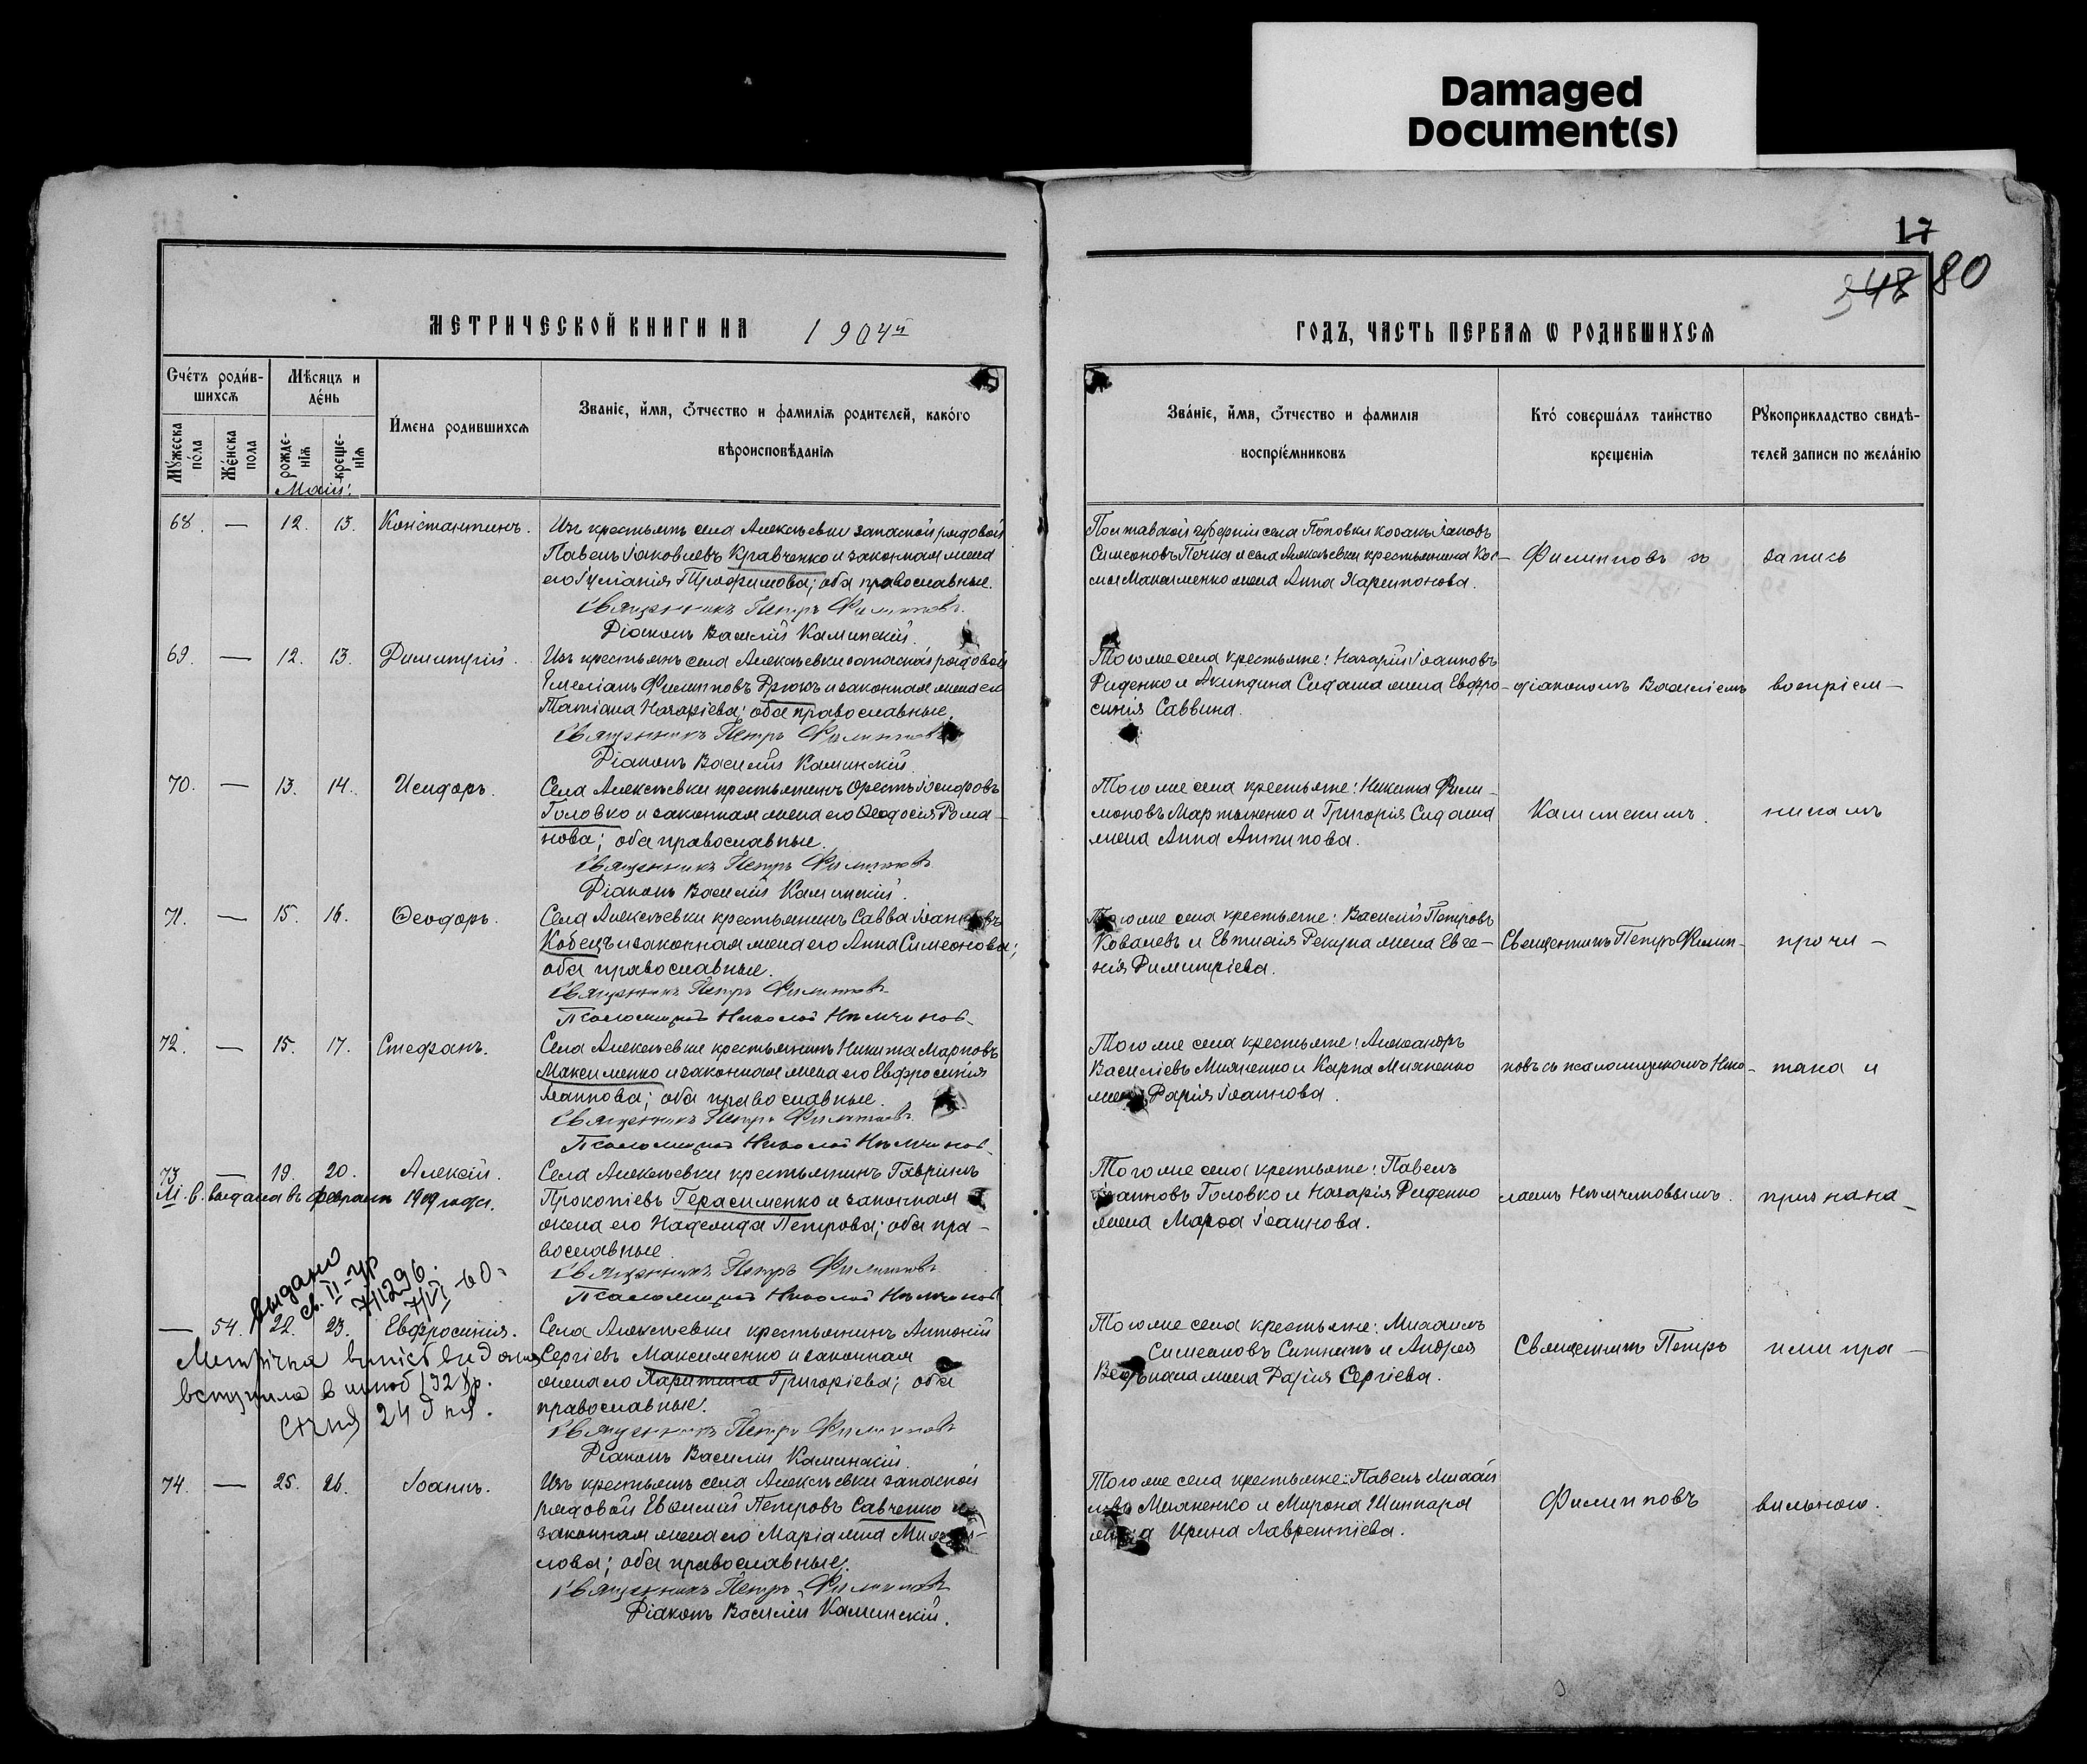 Damaged
Document(s)
17
348 80
МЕТРИЧЕСКОЙ КНИГИ НА 1904й
ГОДЪ, ЧАСТЬ ПЕРВАѦ Ѡ РОДИВШИХСѦ
Счéтъ роди́в-
шихсѧ
Мѣсяцъ и
дéнь
И҆мена родившихсѧ
Званіе, и҆мя, ѻтчество и фамиліѧ родителей, какóго
вѣроисповѣданіѧ
Мꙋ́жеска
пóла
Жéнска
пола
рожде-
ніѧ
креще-
ніѧ
Зва́ніе, и҆мя, ѻтчество и фамиліѧ
воспріéмниковъ
Ктó соверша́лъ таинство
крещеніѧ
Рꙋкоприкладство свидѣ-
телей записи по жела́нію
Май:
68. — 12. 13. Константинъ. Изъ крестьянъ села Алексѣевки запасной рядовой
Павелъ Іаковлевъ Кравченко и законная жена
его Іуліанія Трофимова; оба православные.
Священникъ Петръ Филипповъ.
Діаконъ Василій Каминскій.
Полтавской губерніи села Поповки козакъ
Симеоновъ Печка и села Алексѣевки крестьянина Кос-
мы Максименко жена Анна Харитонова.
Филипповъ съ
запись
69. — 12. 13. Димитрій. Изъ крестьянъ села Алексѣевки запасной рядовой
Емеліанъ Филипповъ Дрюкъ и законная жена его
Татіана Назаріева; оба православные.
Священникъ Петръ Филипповъ
Діаконъ Василій Каминскій.
Того же села крестьяне: Назарій Іоанновъ
Диденко и Акиндина Сидаша жена Евфро-
синія Саввина.
діакономъ Василіемъ
воспріем-
70. — 13. 14. Исидоръ. Села Алексѣевки крестьянинъ Орестъ Іосифовъ
Головко и законная жена его Ѳеодосія Рома-
нова; оба православные.
Священникъ Петръ Филипповъ
Діаконъ Василій Каминскій.
Того же села крестьяне: Никита Фили-
моновъ Мартыненко и Григорія Сидаша
жена Анна Антипова.
Каминскимъ.
никамъ
71. — 15. 16. Ѳеодоръ. Села Алексѣевки крестьянинъ Савва Іоанновъ
Кобецъ и законная жена его Анна Симеонова;
оба православные.
Священникъ Петръ Филипповъ
Псаломщикъ Николай Нѣмчинов.
Того же села крестьяне: Василій Петровъ
Ковалевъ и жена Евге-
нія Димитріева.
Священникъ Петръ Филип-
прочи-
72. — 15. 17. Стефанъ. Села Алексѣевки крестьянинъ Никита Марковъ
Максименко и законная жена его Евфросинія
Іоаннова; оба православные.
Священникъ Петръ Филипповъ.
Псаломщикъ Николай Нѣмчинов.
Того же села крестьяне: Александръ
Василіевъ Михненко и Карпа Михненко
жена Дарія Іоаннова.
повъ съ псаломщикомъ Нико-
тана и
73 — 19. 20. Алексій. Села Алексѣевки крестьянинъ Гавріилъ
М. в. выдана въ февралѣ 1909 года.
Прокопіевъ Герасименко и законная
жена его Надежда Петрова; оба пра-
вославные.
Священникъ Петръ Филипповъ.
Псаломщикъ Николай Нѣмчинов.
Того же села крестьяне: Павелъ
Іоанновъ Головко и Назарія Диденко
жена Марѳа Іоаннова.
лаемъ Нѣмчиновымъ.
признана
Выдано
св. II-УР
7/VI-60.
— 54. 22. 23. Евфросинія. Села Алексѣевки крестьянинъ Антоній
Сергіевъ Максименко и законная
жена его Харитина Григоріева; оба
православные.
Священникъ Петръ Филипповъ
Діаконъ Василій Каминскій.
Того же села крестьяне: Михаилъ
Симеоновъ Ситникъ и Андрея
жена Дарія Сергіева.
Священникъ Петръ
ими пра-
Метрічна
вступила в
січня 24 дня.
74. — 25. 26. Іоаннъ. Изъ крестьянъ села Алексѣевки запасной
рядовой Евѳимій Петровъ Савченко и
законная жена его Маріамна
лова; оба православные.
Священникъ Петръ Филипповъ
Діаконъ Василій Каминскій.
Того же села крестьяне: Павелъ Михаи-
ловъ Михненко и Мирона Шинкаря
жена Ирина Лаврентіева.
Филипповъ
вильною.